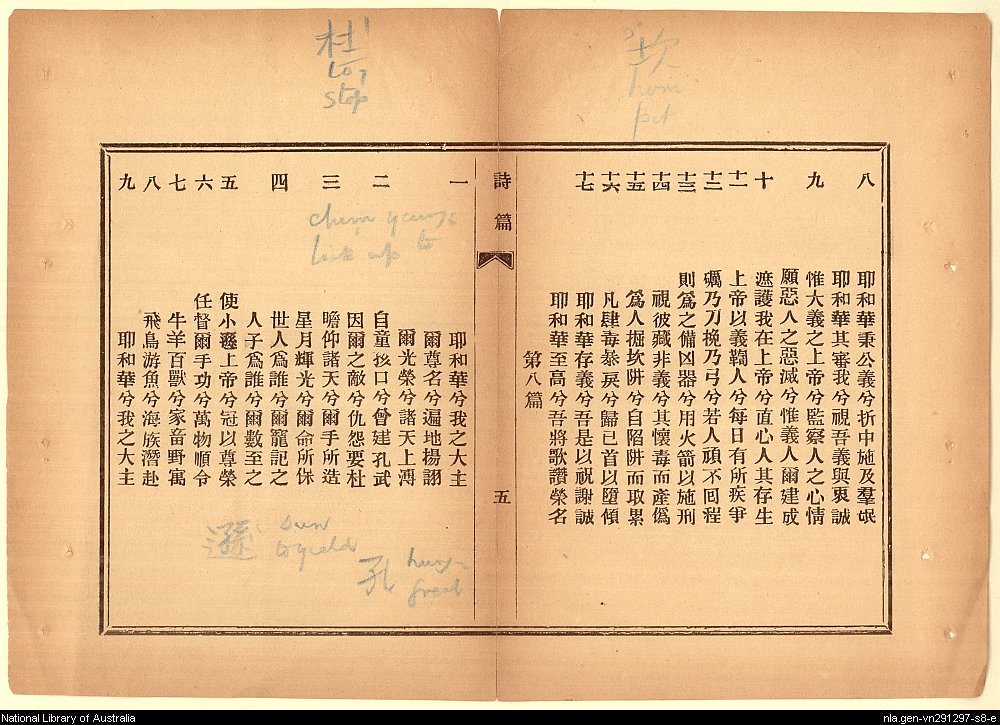 杜 to, stop
坎 hom pit
八 耶和華秉公義兮折中施及羣氓
耶和華其審我兮視吾義與衷誠
九 惟大義之上帝兮監察人之心情
願惡人之惡滅兮惟義人爾建成
十 遮護我在上帝兮直心人其存生
十一 上帝以義鞫人兮每日有所疾爭
十二 礪乃刀挽乃弓兮若人頑不回程
十三 則爲之備凶器兮用火箭以施刑
十四 視彼藏非義兮其懷毒而產僞
十五 爲人掘坎阱兮自陷阱而取累
十六 凡肆毒暴戾兮歸已首以墮傾
十七 耶和華存義兮吾是以祝謝誠
耶和華至高兮吾將歌讚榮名
第八篇
詩篇 五
一 耶和華兮我之大主
爾尊名兮遍地揚詡
爾光榮兮諸天上溥
二 自童孩口兮曾建孔武
因爾之敵兮仇怨要杜
三 瞻仰諸天兮爾手所造
星月輝光兮爾命所保
四 世人爲誰兮爾寵記之
人子爲誰兮爾數至之
五 使小遜上帝兮冠以尊榮
六 任督爾手功兮萬物順令
七 牛羊百獸兮家畜野寓
八 飛鳥游魚兮海族潛赴
九 耶和華兮我之大主
look up to
遜 sun to yield
孔 hung great
National Library of Australia
nla.gen-vn291297-s8-e